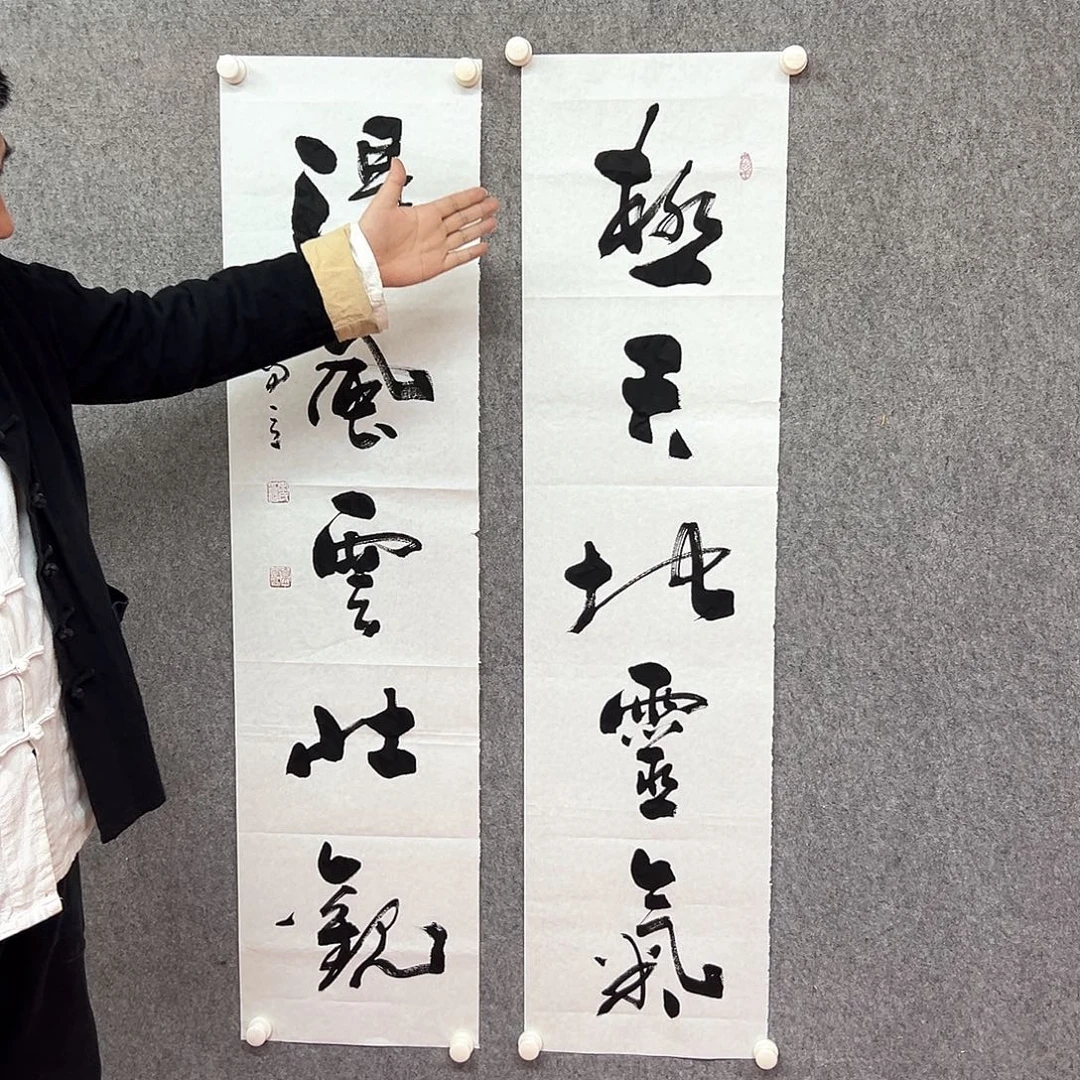 極天地靈氣
風雲壯觀